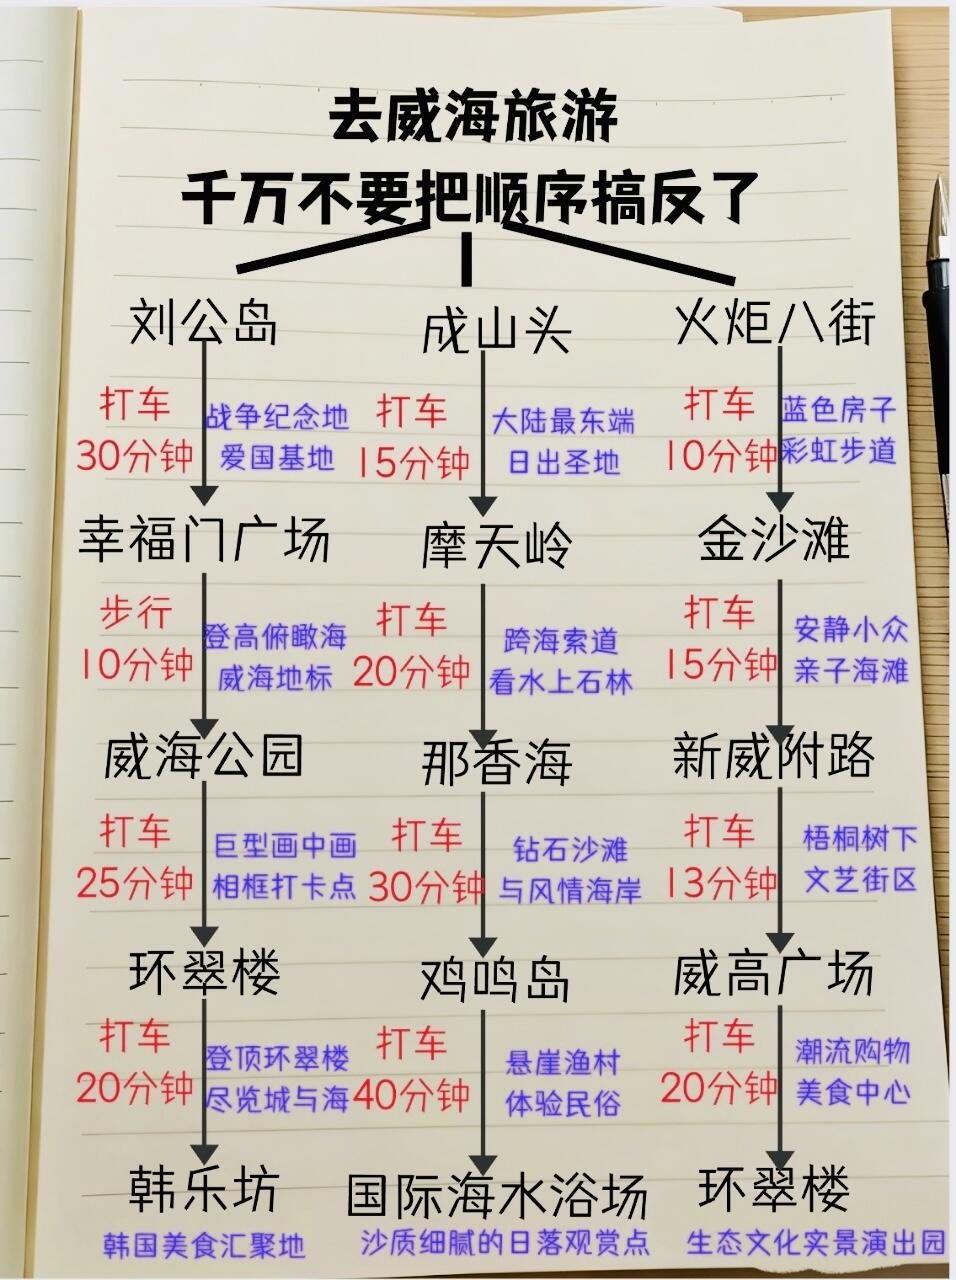 去威海旅游
千万不要把顺序搞反了
刘公岛
打车
30分钟
战争纪念地
爱国基地
幸福门广场
步行
10分钟
登高俯瞰海
威海地标
威海公园
打车
25分钟
巨型画中画
相框打卡点
环翠楼
打车
20分钟
登顶环翠楼
尽览城与海
韩乐坊
韩国美食汇聚地
成山头
打车
15分钟
大陆最东端
日出圣地
摩天岭
打车
20分钟
跨海索道
看水上石林
那香海
打车
30分钟
钻石沙滩
与风情海岸
鸡鸣岛
打车
40分钟
悬崖渔村
体验民俗
国际海水浴场
沙质细腻的日落观赏点
火炬八街
打车
10分钟
蓝色房子
彩虹步道
金沙滩
打车
15分钟
安静小众
亲子海滩
新威附路
打车
13分钟
梧桐树下
文艺街区
威高广场
打车
20分钟
潮流购物
美食中心
环翠楼
生态文化实景演出园